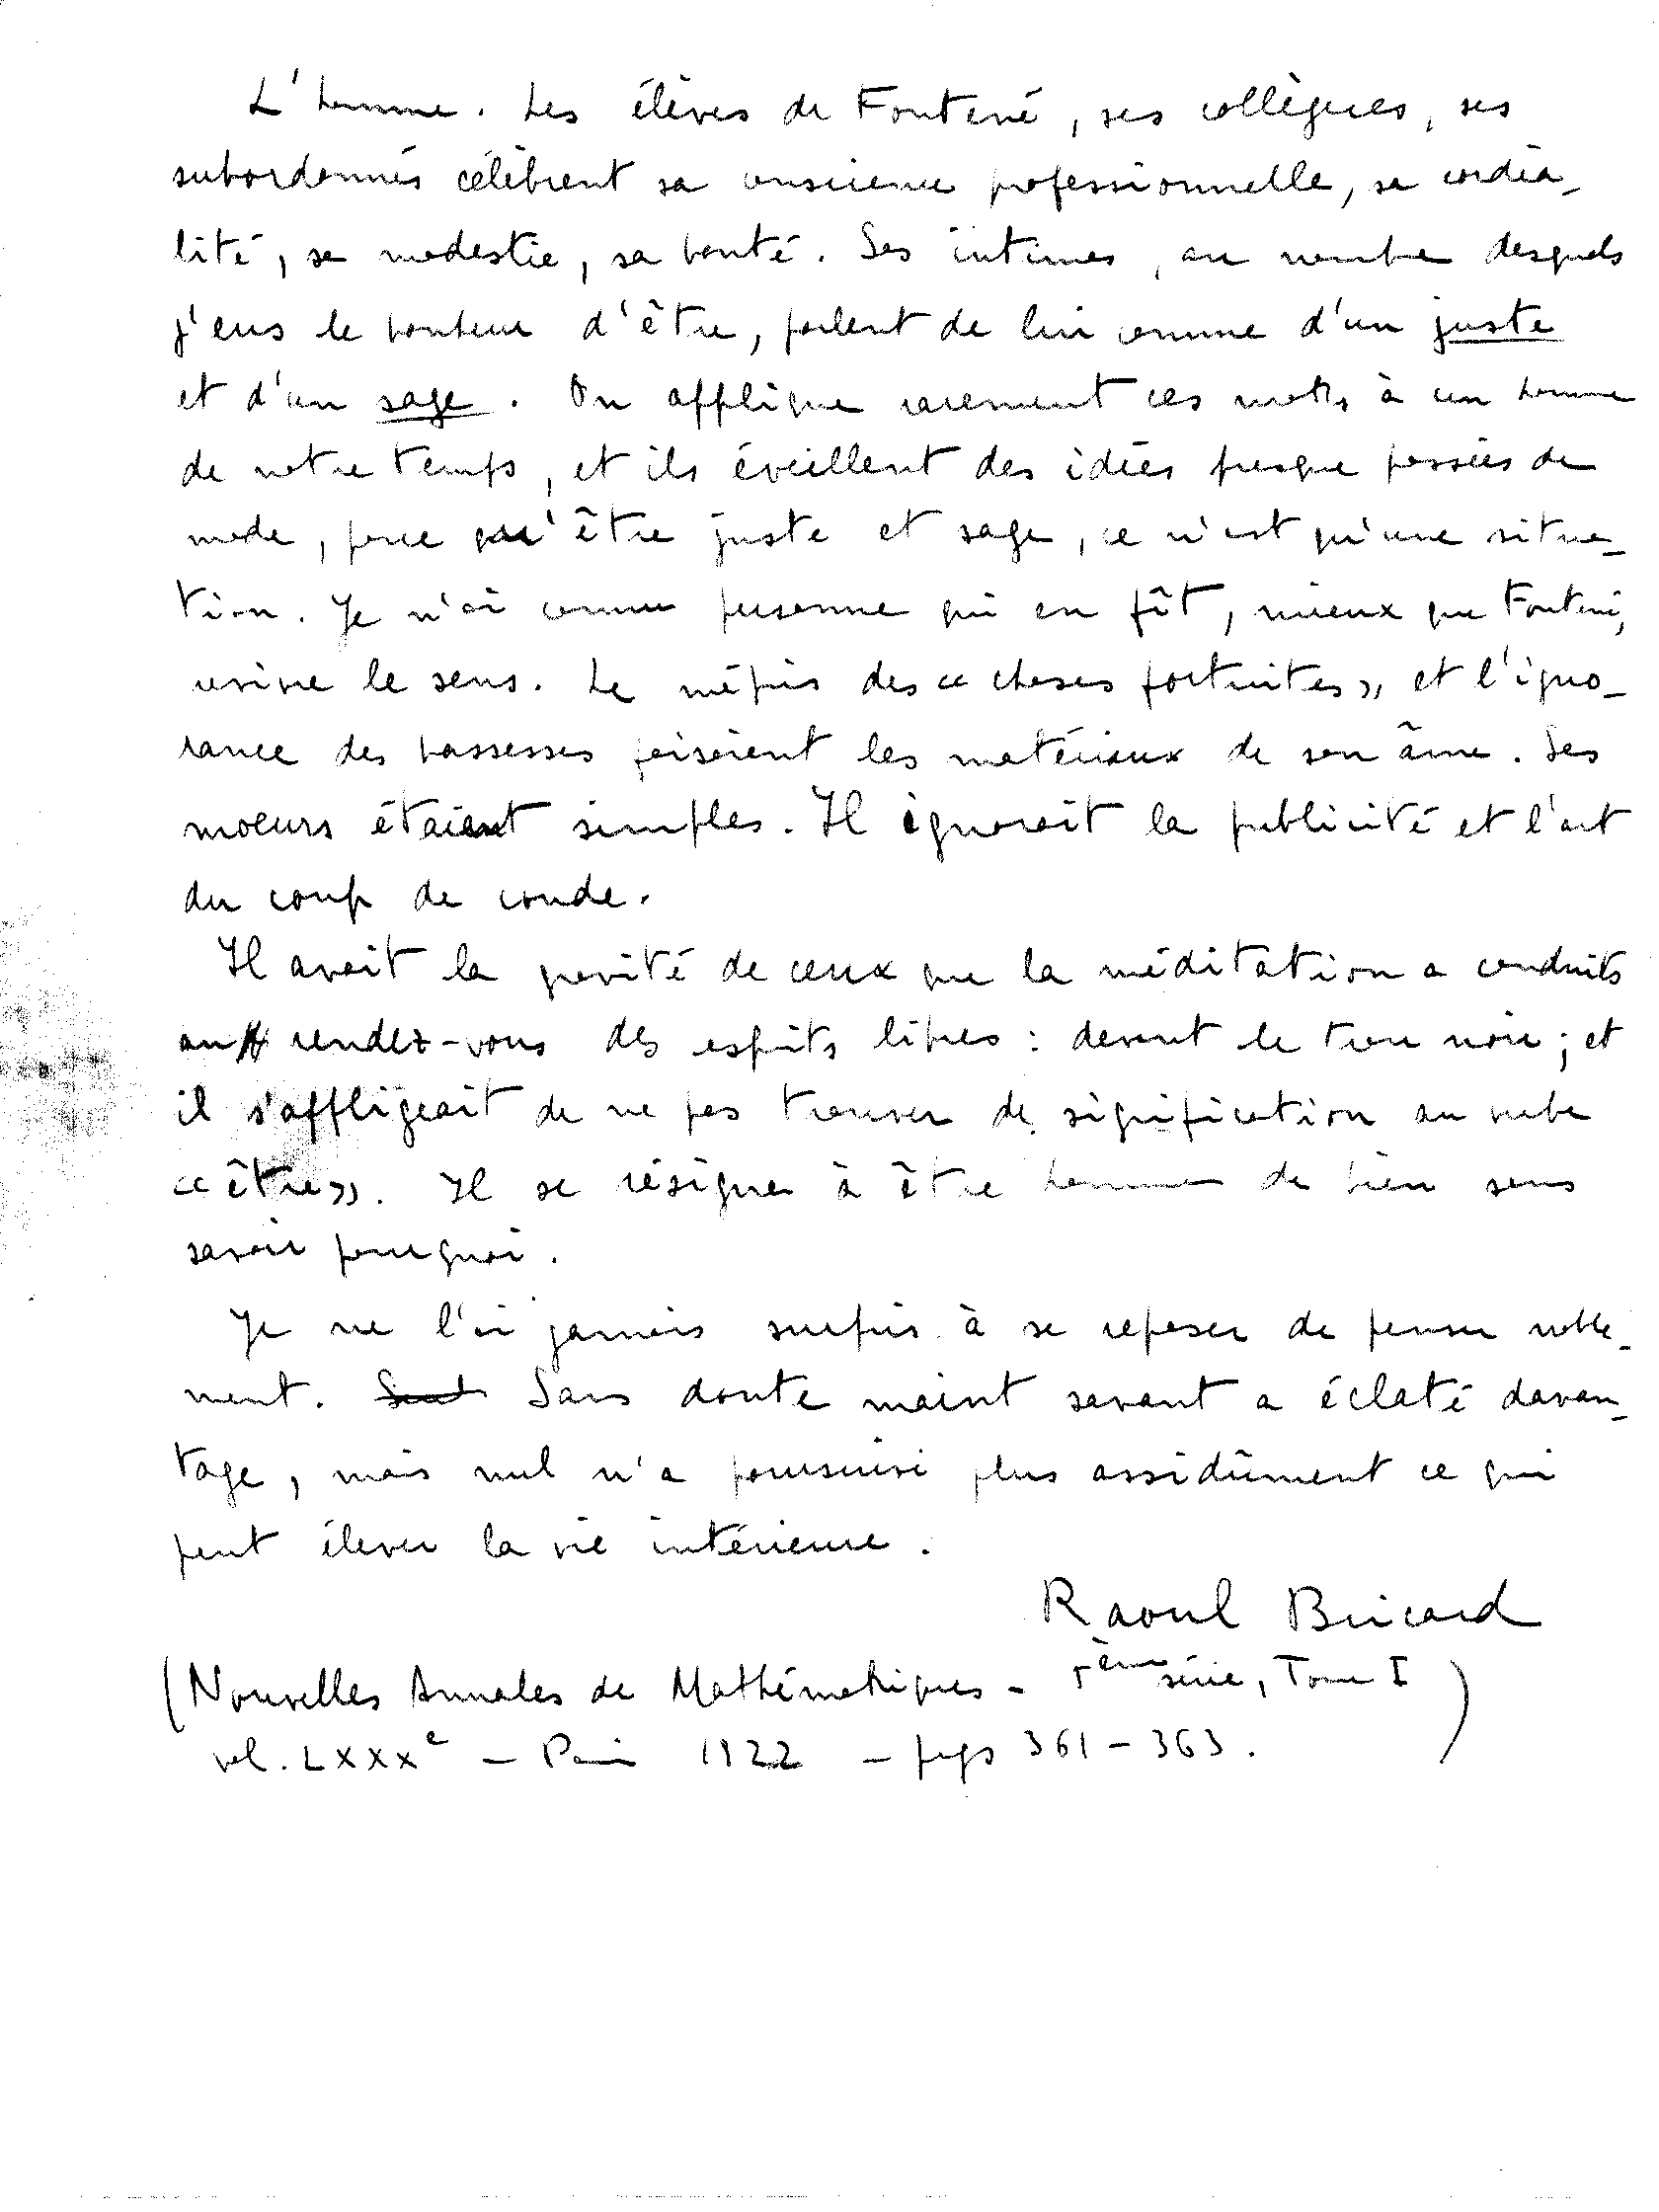 L'homme. Les élèves de Fontené, ses collègues, ses
subordonnés célèbrent sa conscience professionnelle, sa cordia-
lité, sa modestie, sa bonté. Ses intimes, au nombre desquels
j'eus le bonheur d'être, parlent de lui comme d'un juste
et d'un sage. On applique rarement ces mots à un homme
de notre temps, et ils éveillent des idées presque passées de
mode, parce qu'être juste et sage, ce n'est qu'une situa-
tion. Je n'ai connu personne qui en fît, mieux que Fontené,
revivre le sens. Le mépris des « choses fortuites » et l'igno-
rance des bassesses faisaient les matériaux de son âme. Ses
moeurs étaient simples. Il ignorait la publicité et l'art
du coup de coude.
Il avait la gravité de ceux que la méditation a conduits
au rendez-vous des esprits libres : devant le trou noir ; et
il s'affligeait de ne pas trouver de signification au verbe
« être ». Il se résigna à être homme de bien sans
savoir pourquoi.
Je ne l'ai jamais surpris à se reposer de penser noble-
ment. Sans doute maint savant a éclaté davan-
tage, mais nul n'a poursuivi plus assidûment ce qui
peut élever la vie intérieure.
Raoul Bricard
(Nouvelles Annales de Mathématiques - 5ème série, Tome I
vol. LXXXe - Paris 1922 - pages 361-363.)